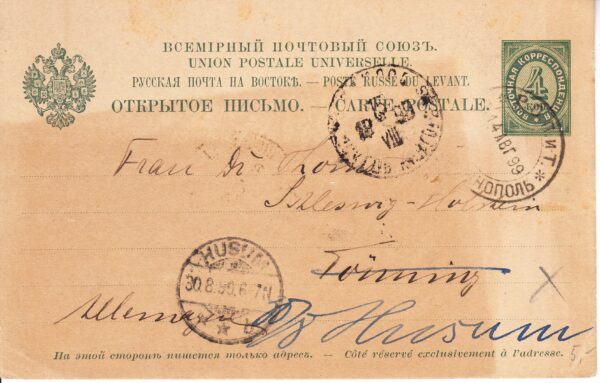 ВСЕМІРНЫЙ ПОЧТОВЫЙ СОЮЗЪ.
UNION POSTALE UNIVERSELLE.
РУССКАЯ ПОЧТА НА ВОСТОКѢ. — POSTE RUSSE DU LEVANT.
ОТКРЫТОЕ ПИСЬМО. — CARTE POSTALE.
ВОСТОЧНАЯ КОРРЕСПОНДЕН
4
14 АВГ 99
НОПОЛЬ
18 15 99
VIII
Frau Dr Thom
Schleswig-Holstein
Tönning
HUSUM
30.8.99.6-7N
Allemagne
Husum
На этой сторонѣ пишется только адресъ. — Côté réservé exclusivement à l'adresse.
5,-